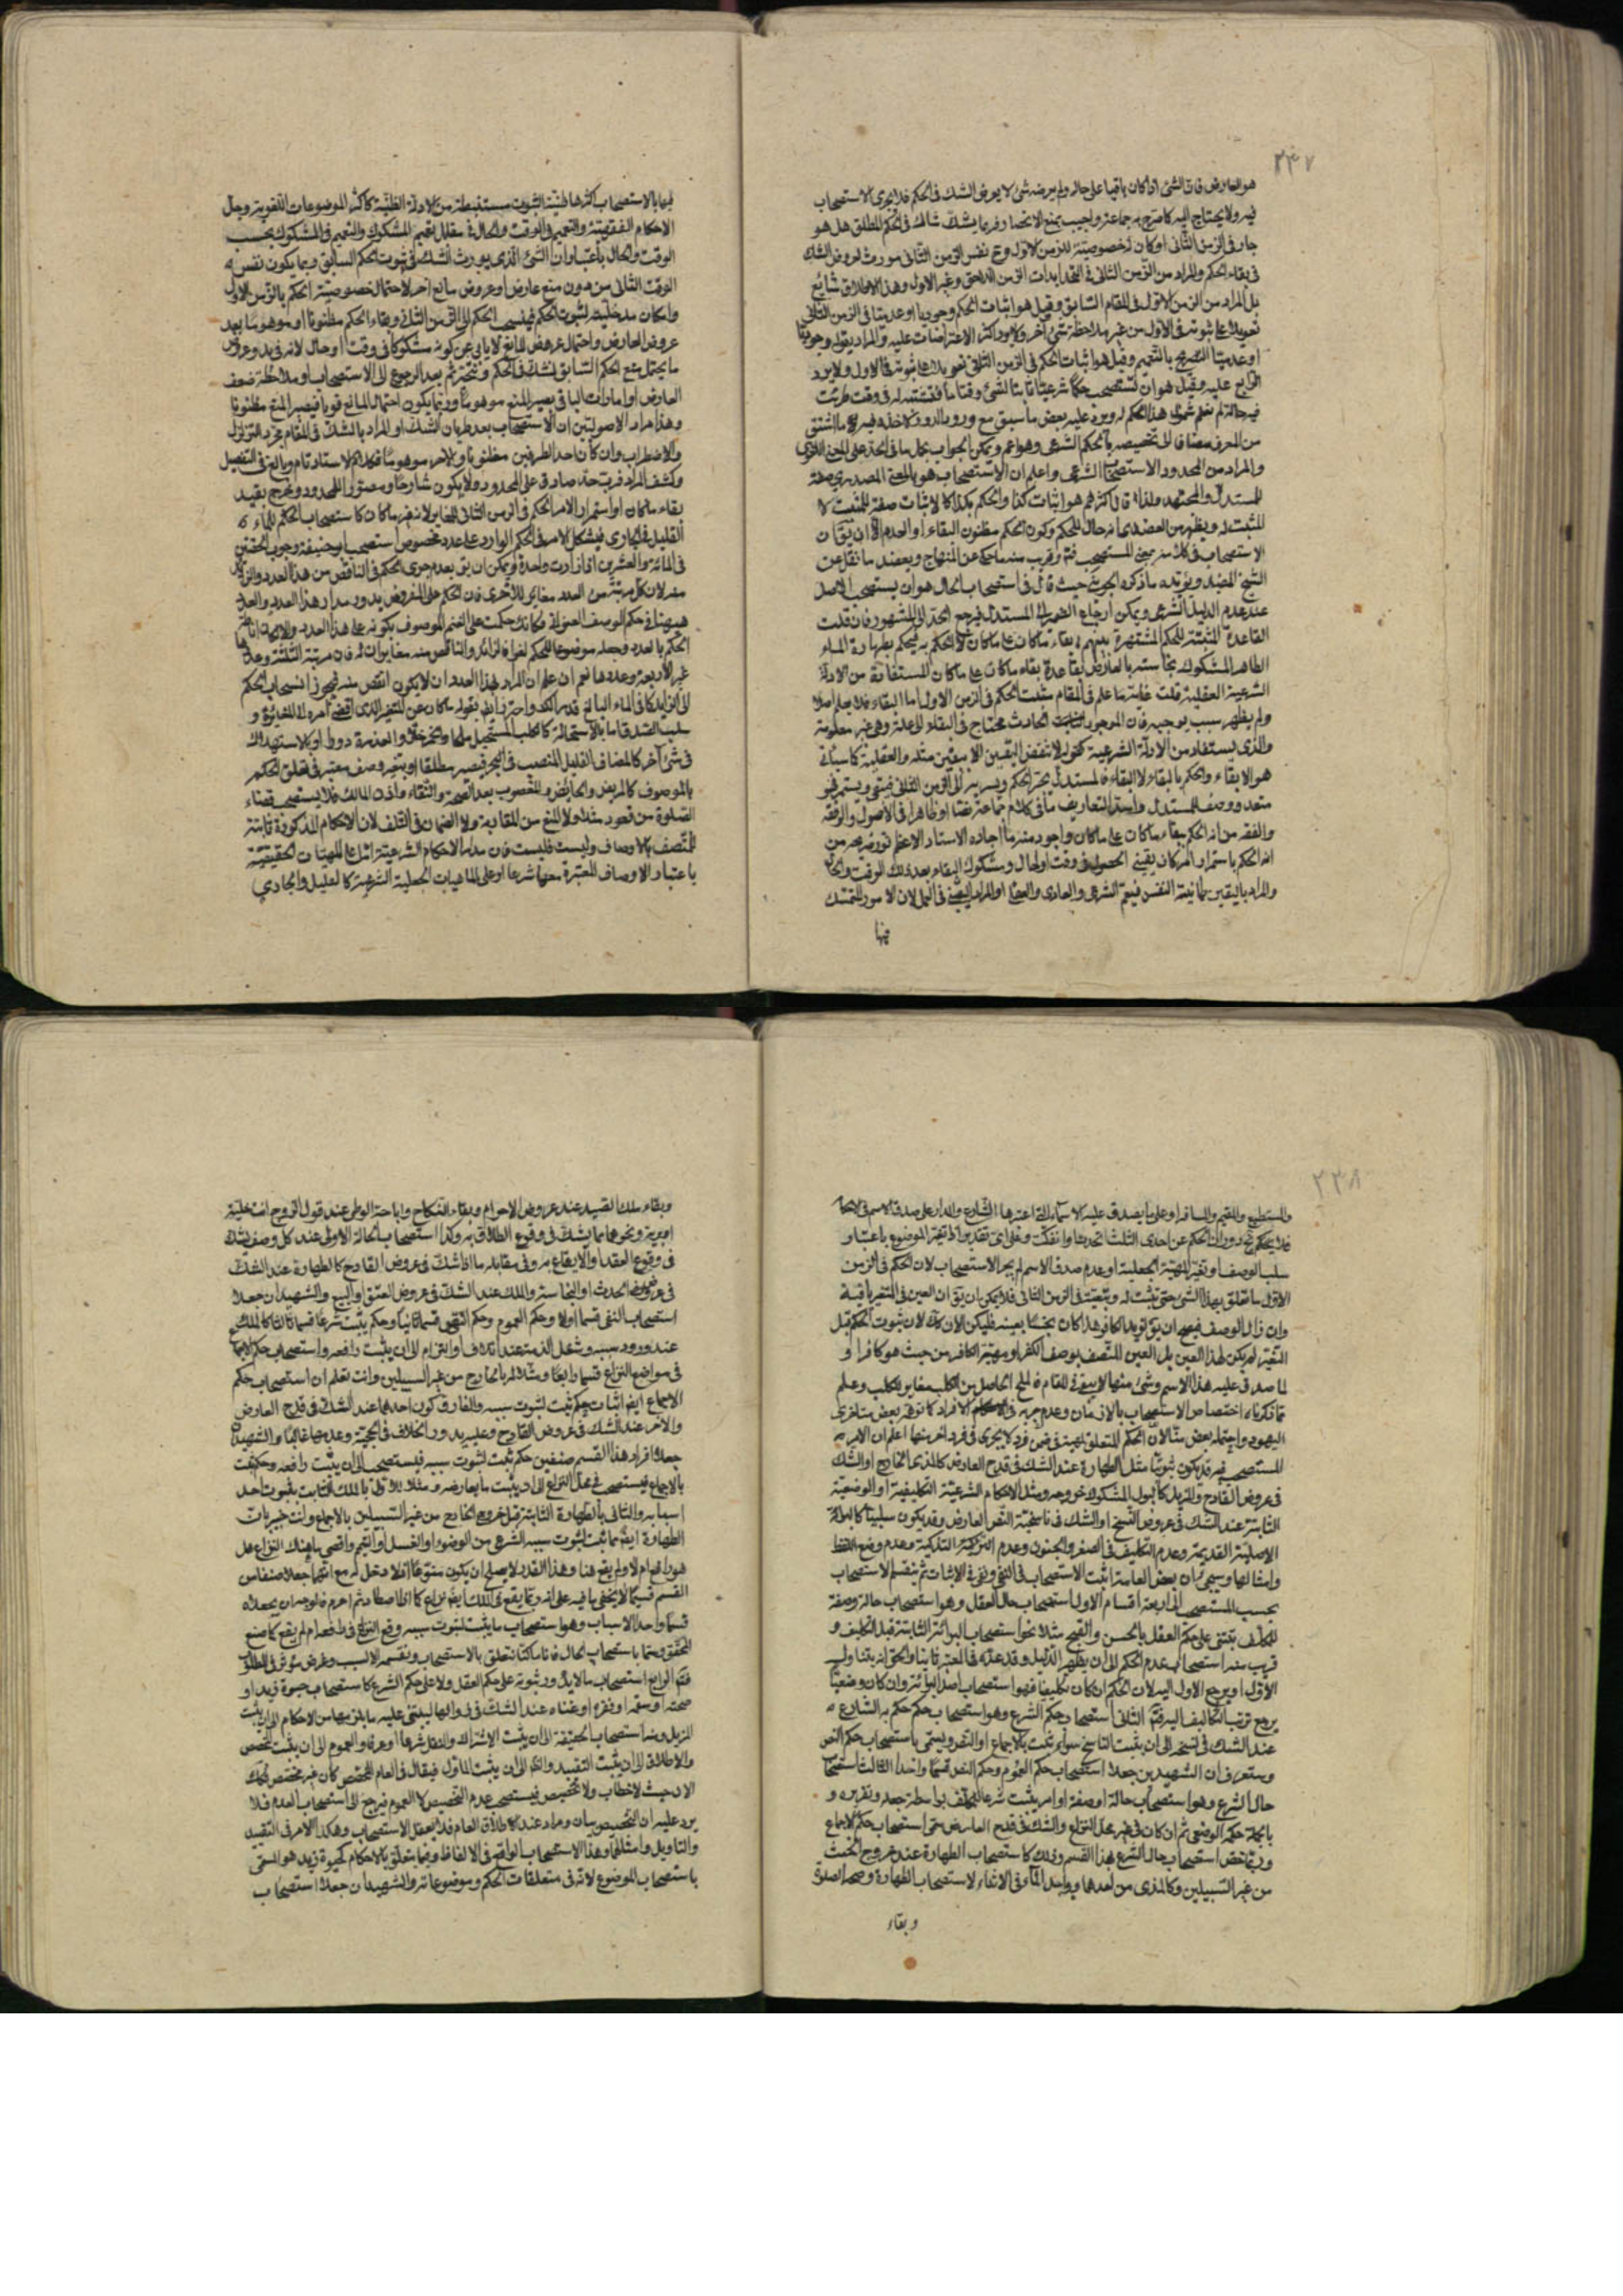 ٢٣٧
هو العارض فان الشئ اذا كان باقيا على حاله ولم يعرضه شئ لا يعرض الشك في الحكم فلا يجرى الاستصحاب
فيه ولا يحتاج اليه كما صرح به جماعة واجيب بمنع الانحصار فربما يشك شاك في الحكم المطلق هل هو
جار في الزمن الثانى او كان لخصوصية للزمن الاول ومع نفس الزمن الثانى مورث لعروض الشك
في بقاء الحكم والمراد من الزمن الثانى في التحديدات الزمن اللاحق وغير الاول وهذا الاطلاق شائع
بل المراد من الزمن الاول في المقام السابق وقيل هو اثبات الحكم وجوديا او عدميا في الزمن الثانى
تعويلا على ثبوته في الاول من غير ملاحظة شئ آخر ولا يرد اكثر الاعتراضات عليه والمراد بقوله وجوديا
او عدميا التصريح بالتعميم وقيل هو اثبات الحكم في الزمن الثانى تعويلا على ثبوته في الاول ولا يرد
الرابع عليه وقيل هو ان تستصحب حكما شرعيا ثابتا لشئ وقتا ما فتثبته له في وقت طرئت
فيه حالة لم نعلم شمول هذا الحكم له ويرد عليه بعض ما سبق مع ورود الدور
من المعرف مضافا الى تخصيصه بالحكم الشرعى وهو اعم ويمكن الجواب بحمل ما في الحد على المعنى اللغوى
والمراد من المحدود الاستصحاب الشرعى واعلم ان الاستصحاب هو بالمعنى المصدرى صفة
للمستدل والمجتهد ولذا قال اكثرهم هو اثبات كذا والحكم بكذا كالاثبات صفة للمثبت لا
المثبت له ويظهر من العضدى انه حال للحكم وكون الحكم مظنون البقاء او العدم الا ان يق ان
الاستصحاب في كلامه بمعنى المستصحب فتم وقريب منه ما حكى عن المنهاج ويعضد ما نقل عن
الشيخ المفيد ويؤيده ما ذكره الجوينى حيث قال في استصحاب الحال هو ان يستصحب الاصل
عند عدم الدليل الشرعى ويمكن ارجاع الضمير الى المستدل فيرجع الحد الى المشهور فان قلت
القاعدة المثبتة للحكم المشتهرة بينهم ابقاء ما كان على ما كان لا الحكم به فيحكم بطهارة الماء
الطاهر المشكوك نجاسته بالعارض بقاعدة بقاء ما كان على ما كان المستفادة من الادلة
الشرعية العقلية قلت غاية ما علم في المقام مثبت الحكم في الزمن الاول اما البقاء فلا يعلم اصلا
ولم يظهر سبب يوجبه فان الموجود الحادث محتاج في البقاء الى علة وهى غير معلومة
والذى يستفاد من الادلة الشرعية كقوله لا تنقض اليقين الا بيقين مثله والعقلية كما سيأتى
هو الابقاء والحكم بالبقاء لا البقاء فالمستدل يجر الحكم ويسريه الى الزمن الثانى فيبقى ويستمر فهو
متعد ووصف للمستدل واسد التعاريف ما في كلام جماعة نصا او ظاهرا في الاصول والفقه
والفقه من انه الحكم ببقاء ما كان على ما كان واجود منه ما اجاده الاستاد الاعظم نور ضريحه من
انه الحكم باستمرار امر كان يقينى الحصول في وقت او حال ومشكوك البقاء بعد ذلك الوقت والحال
والمراد باليقين طمانينة النفس فيعم الشرعى والعادى والعقلى او المراد اليقين في العمل لان الامور المتمسك
فيها
فيها بالاستصحاب اكثرها ظنية الثبوت مستنبطة من الادلة الظنية كاكثر الموضوعات اللغوية وجل
الاحكام الفقهية والتعميم في الوقت والحال في مقابل تعميم المشكوك والتعميم في المشكوك بحسب
الوقت والحال باعتبار ان الشئ الذى يورث الشك في ثبوت الحكم السابق ربما يكون نفس
الوقت الثانى من دون منع عارض او عروض مانع آخر لاحتمال خصوصية الحكم بالزمن الاول
وامكان مدخليته لثبوت الحكم فينسحب الحكم الى الزمن الثانى وبقاء الحكم مظنونا او موهوما بعد
عروض العارض واحتمال عروض المانع لا يابى عن كونه مشكوكا في وقت او حال لانه في بدو عروض
ما يحتمل منع الحكم السابق نشك في الحكم ثم بعد الرجوع الى الاستصحاب او ملاحظة ضعف
العارض او امارات البقاء يصير المنع موهوما وربما يكون احتمال المانع قويا فيصير المنع مظنونا
وهذا مراد الاصوليين ان الاستصحاب بعد طريان الشك او المراد بالشك في المقام مجرد التزلزل
والاضطراب وان كان احد الطرفين مظنونا والآخر موهوما فكلام الاستاد تام وبالغ في التفصيل
وكشف المراد فرب حد صادق على المحدود ولا يكون شارحا ومصورا للمحدود ويخرج بقيد
بقاء ما كان او استمرار الامر الحكم في الزمن الثانى المغاير لانه غير ما كان كاستصحاب الحكم للماء
القليل في الجارى فيشكل الامر في الحكم الوارد على عدد مخصوص استصحب ابو حنيفة وجوب الحقتين
في المائة والعشرين اذا زادت واحدة ويمكن ان يق بعدم جرى الحكم في الناقص من هذا العدد والزائد
منه لان كل مرتبة من العدد مغاير للاخرى فان الحكم على المفروض يدور مدار هذا العدد والعدد
ههنا في حكم الوصف العنوانى فكانه حكمت على الغنم الموصوف بكونه على هذا العدد
الحكم بالعدد وجعله موضوعا للحكم لغو فالزائد والناقص منه مغايران له فان مرتبة الثلثة وعدها
غير الاربعة وعدها نعم ان علم ان المراد بهذا العدد ان لا يكون انقص منه فيجوز انسحاب الحكم
الى الزايد كما في الماء البالغ قدر الكر واحترز ايضا بقوله ما كان عن المتغير الذى اقتضى امره الى المغايرة و
سلب الصدق اما بالاستحالة كالكلب المستحيل ملحا والخمر خلا والعذرة دودا او بالاستهلاك
في شئ آخر كالمضاف القليل المنصب في البحر فيصير مطلقا او بتغير وصف معتبر في تعلق الحكم
بالموصوف كالمريض والحائض والمغصوب بعد الصحة والنقاء واذن المالك فلا يستصحب قضاء
الصلوة من قعود مثلا ولا المنع من المقاربة ولا الضمان في التلف لان الاحكام المذكورة ثابتة
للمتصف بالاوصاف وليست فليست فان مدار الاحكام الشرعية اما على المهيات الحقيقية
باعتبار الاوصاف المعتبرة معها شرعا او على الماهيات الجعلية الشرعية كالقليل والجارى
٢٣٨
والمستطيع والمقيم والمسافر او على ما يصدق عليه الاسماء التى اعتبرها الشارع والمدار على صدق الاسم في الايجاب
فلا يحكم دوران الحكم عن احدى الثلث اتحدت او انفكت وعلى اى تقدير اذا تغير الموضوع باعتبار
سلب الوصف او تغير المهية الجعلية او عدم صدق الاسم لم يجر الاستصحاب لان الحكم في الزمن
الاول ما تعلق بهذا الشئ حتى يثبت له وتبقيته في الزمن الثانى فلا يمكن ان يق ان العين في المتغير باقية
وان زال الوصف فيصح ان يق تويد الكافر هذا كان نجسا بعينه فليكن الآن كك لان ثبوت الحكم قبل
التغير لم يكن لهذا العين بل العين المتصف بوصف الكفر او مهية الكافر من حيث هو كافر او
لما صدق عليه هذا الاسم وشئ منها لا يبقى في المقام فالملح الحاصل من الكلب مغاير للكلب وعلم
مما ذكرناه اختصاص الاستصحاب بالازمان وعدم جريه في الافراد كما توهم بعض متاخرى
اليهود واحتمله بعض منا لان الحكم المتعلق بعينه في ضمن فرد لا يجرى في فرد آخر منها اعلم ان الامر
المستصحب فيه قد يكون ثبوتيا مثل الطهارة عند الشك في قدح العارض كالمذى الخارج او الشك
في عروض القادح والمزيل كالبول المشكوك خروجه ومثل الاحكام الشرعية التكليفية او الوضعية
الثابتة عند الشك في عروض النسخ او الشك في ناسخية النص العارض وقد يكون سلبيا كالبرائة
الاصلية القديمة وعدم التكليف في الصغر والجنون وعدم التزكية التذكية وعدم وضع اللفظ
وامثالها وسيجئ ان بعض العامة اثبت الاستصحاب في النفى ونفيه في الاثبات ثم ينقسم الاستصحاب
بحسب المستصحب الى اربعة اقسام الاول استصحاب حال العقل وهو استصحاب حالة وصفة
للمكلف يبتنى على حكم العقل بالحسن والقبح مثلا نحو استصحاب البرائة الثابتة قبل التكليف و
قريب منه استصحاب عدم الحكم الى ان يظهر الدليل وقد عده في المعتبر ثانيا والحق انه يتناوله
الاول او يرجع الاول اليه لان الحكم ان كان تكليفيا فهو استصحاب اصل البرائة وان كان وضعيا
يرجع ترتب التكاليف اليه فتم الثانى استصحاب حكم الشرع وهو استصحاب حكم حكم به الشارع
عند الشك في نسخه الى ان يثبت الناسخ سواء ثبت بالاجماع او النص ويسمى باستصحاب حكم النص
وستعرف ان الشهيدين جعلا استصحاب حكم العموم وحكم النص قسما واحدا الثالث استصحاب
حال الشرع وهو استصحاب حالة او صفة او امر يثبت شرعا للمكلف بواسطة جعله وتقريره و
بالجملة حكمه الوضعى ثم ان كان في غير محل النزاع والشك في قدح العارض سمى استصحاب حكم الاجماع
وربما خص استصحاب حال الشرع بهذا القسم وذلك كاستصحاب الطهارة عند خروج الخبث
من غير السبيلين وكالمذى من احدهما وواجد الماء في الاثناء لاستصحاب الطهارة وصحة الصلوة
وبقاء
وبقاء سلك الصيد عند عروض الاحرام وبقاء النكاح واباحة الوطى عند قول الزوج انت خلية
او برية ونحوهما مما يشك في وقوع الطلاق به وكذا استصحاب الحالة الاولى عند كل وصف يشك
في وقوع العقد والايقاع به وفى مقابله ما اذا شك في عروض القادح كالطهارة عند الشك
في عروض الحدث او النجاسة والملك عند الشك في عروض العتق او البيع والشهيدان جعلا
استصحاب النفى قسما اولا وحكم العموم وحكم النص قسما ثانيا وحكم يثبت شرعا قسما ثالثا كالملك
عند ورود سببه وشغل الذمة عند اتلاف او التزام الى ان يثبت رافعه واستصحاب حكم الاجماع
في مواضع النزاع قسما رابعا ومثلا له بالخارج من غير السبيلين وانت تعلم ان استصحاب حكم
الاجماع ايضا اثبات حكم ثبت لثبوت سببه والفارق كون احدهما عند الشك في قدح العارض
والآخر عند الشك في عروض القادح وعليه يدور الخلاف في الحجية وعدمها غالبا والشهيدان
جعلا افراد هذا القسم صنفين حكم ثبت لثبوت سببه فيستصحب الى ان يثبت رافعه وحكم ثبت
بالاجماع فيستصحب في محل النزاع الى ان يثبت ما يعارضه ومثلا للاول بالملك الثابت بثبوت احد
اسبابه والثانى بالطهارة الثابتة قبل خروج الخارج من غير السبيلين بالاجماع وانت خبير بان
الطهارة ايضا مما ثبت لثبوت سببه الشرعى من الوضوء او الغسل او التيمم واقصى ما هنا النزاع هل
هو رافع ام لا ولم يقع هنا وهذا القدر لا يصلح ان يكون منوعا اذ لا دخل له مع انهما جعلا صنفا من
القسم قسيما لا يخفى ما فيه على انه ربما يقع في الملك ايضا نزاع كما اذا صطاد ثم احرم فالوجه ان يجعلاه
قسما واحدا لاسباب وهو استصحاب ما يثبت لثبوت سببه وقع النزاع في رافعه ام لم يقع كما صنع
المحقق وسماه باستصحاب الحال فانا مكلفا نتعلق بالاستصحاب ونقسمه لا لسبب وغرض مؤثر في المطلوب
فتم الرابع استصحاب ما لا يدور ثبوته على حكم العقل ولا على حكم الشرع كاستصحاب حيوة زيد او
صحته او سقمه او فقره او غناه عند الشك في زوالها ليبتنى عليه ما يلزمها من الاحكام الى ان يثبت
المزيل ومنه استصحاب الحقيقة الى ان يثبت الاشتراك والنقل شرعا او عرفا والعموم الى ان يثبت مخصص
والاطلاق الى ان يثبت التقييد والظاهر الى ان يثبت المأول فيقال في العام المخصص كان غير مخصص فكك
الآن حيث لا خطاب ولا تخصيص فيستصحب عدم التخصيص لا العموم فيرجع الى استصحاب العدم فلا
يرد عليه ان التخصيص بيان ومراد عند اطلاق العام فلا يعقل الاستصحاب وهكذا الامر في التقييد
والتاويل وامثالها وهذا الاستصحاب الواقع في الالفاظ وفيما يتعلق بالاحكام كحيوة زيد هو المسمى
باستصحاب الموضوع لانه في متعلقات الحكم وموضوعاته والشهيدان جعلا استصحاب